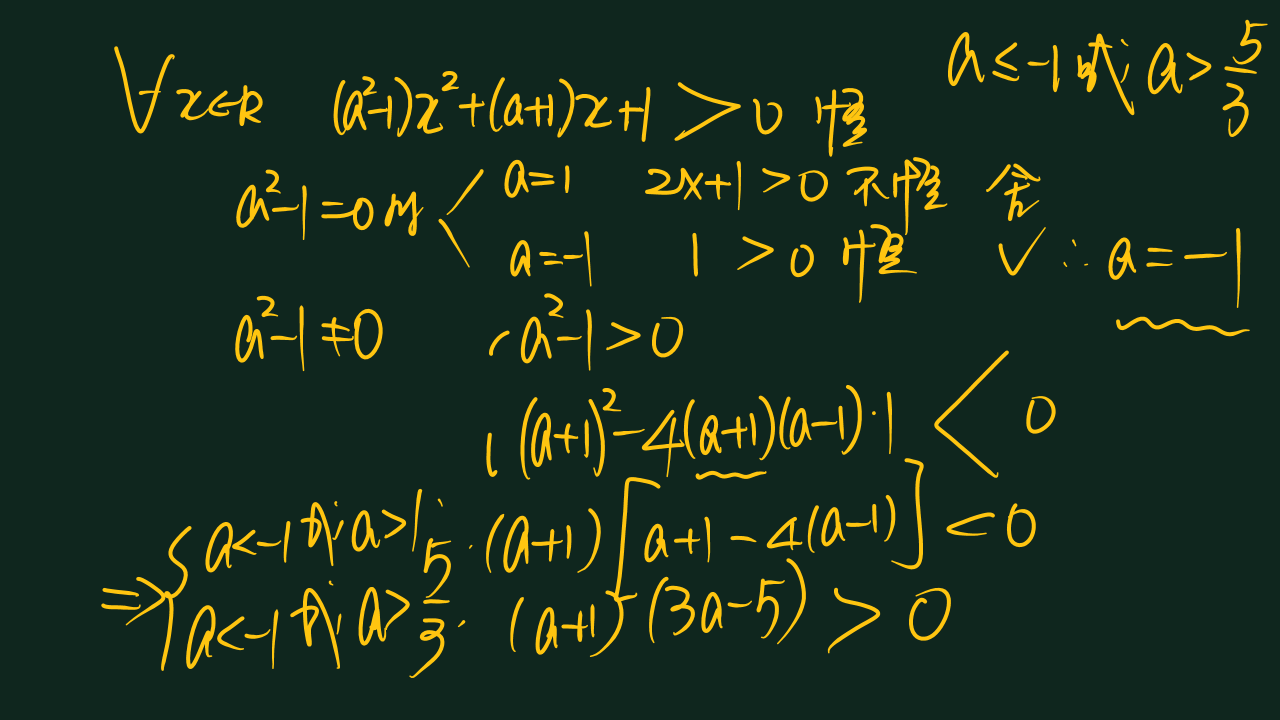 ∀x∈R (a²-1)x²+(a+1)x+1>0 恒
a≤-1 或 a>5/3
a²-1=0时 a=1 2x+1>0 不恒 舍
a=-1 1>0 恒 ✓ ∴a=-1
a²-1≠0 a²-1>0
(a+1)²-4(a+1)(a-1)·1<0
a<-1 或 a>1 (a+1)[a+1-4(a-1)]<0
⇒ a<-1 或 a>5/3 (a+1)(3a-5)>0